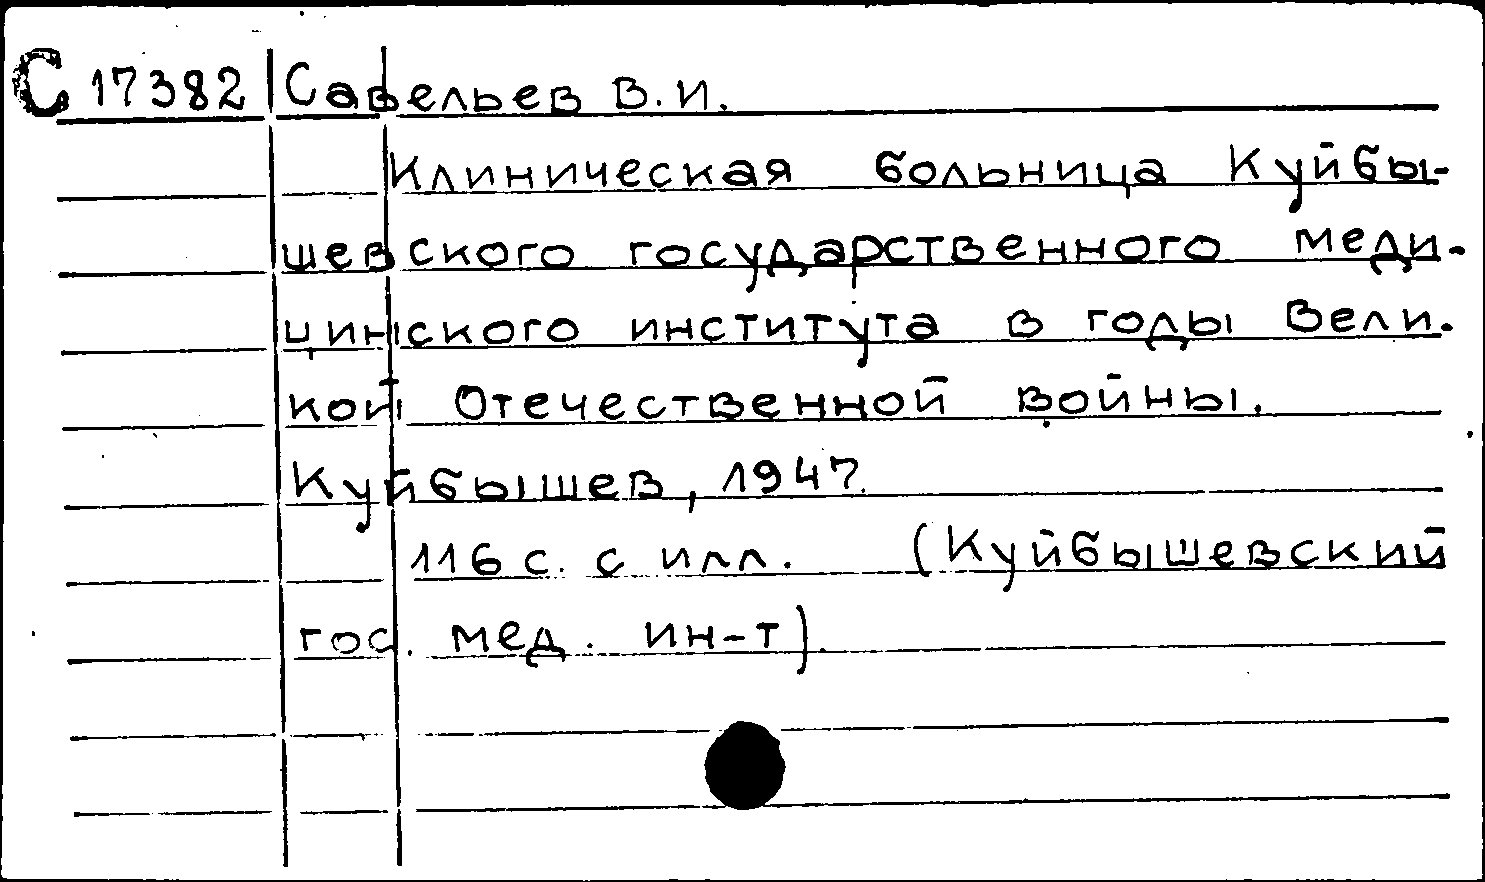 С 17382 Савельев В.И.
Клиническая больница Куйбы-
шевского государственного меди-
цинского института в годы Вели-
кой Отечественной войны.
Куйбышев, 1947.
116 с. с илл. (Куйбышевский
гос. мед. ин-т).